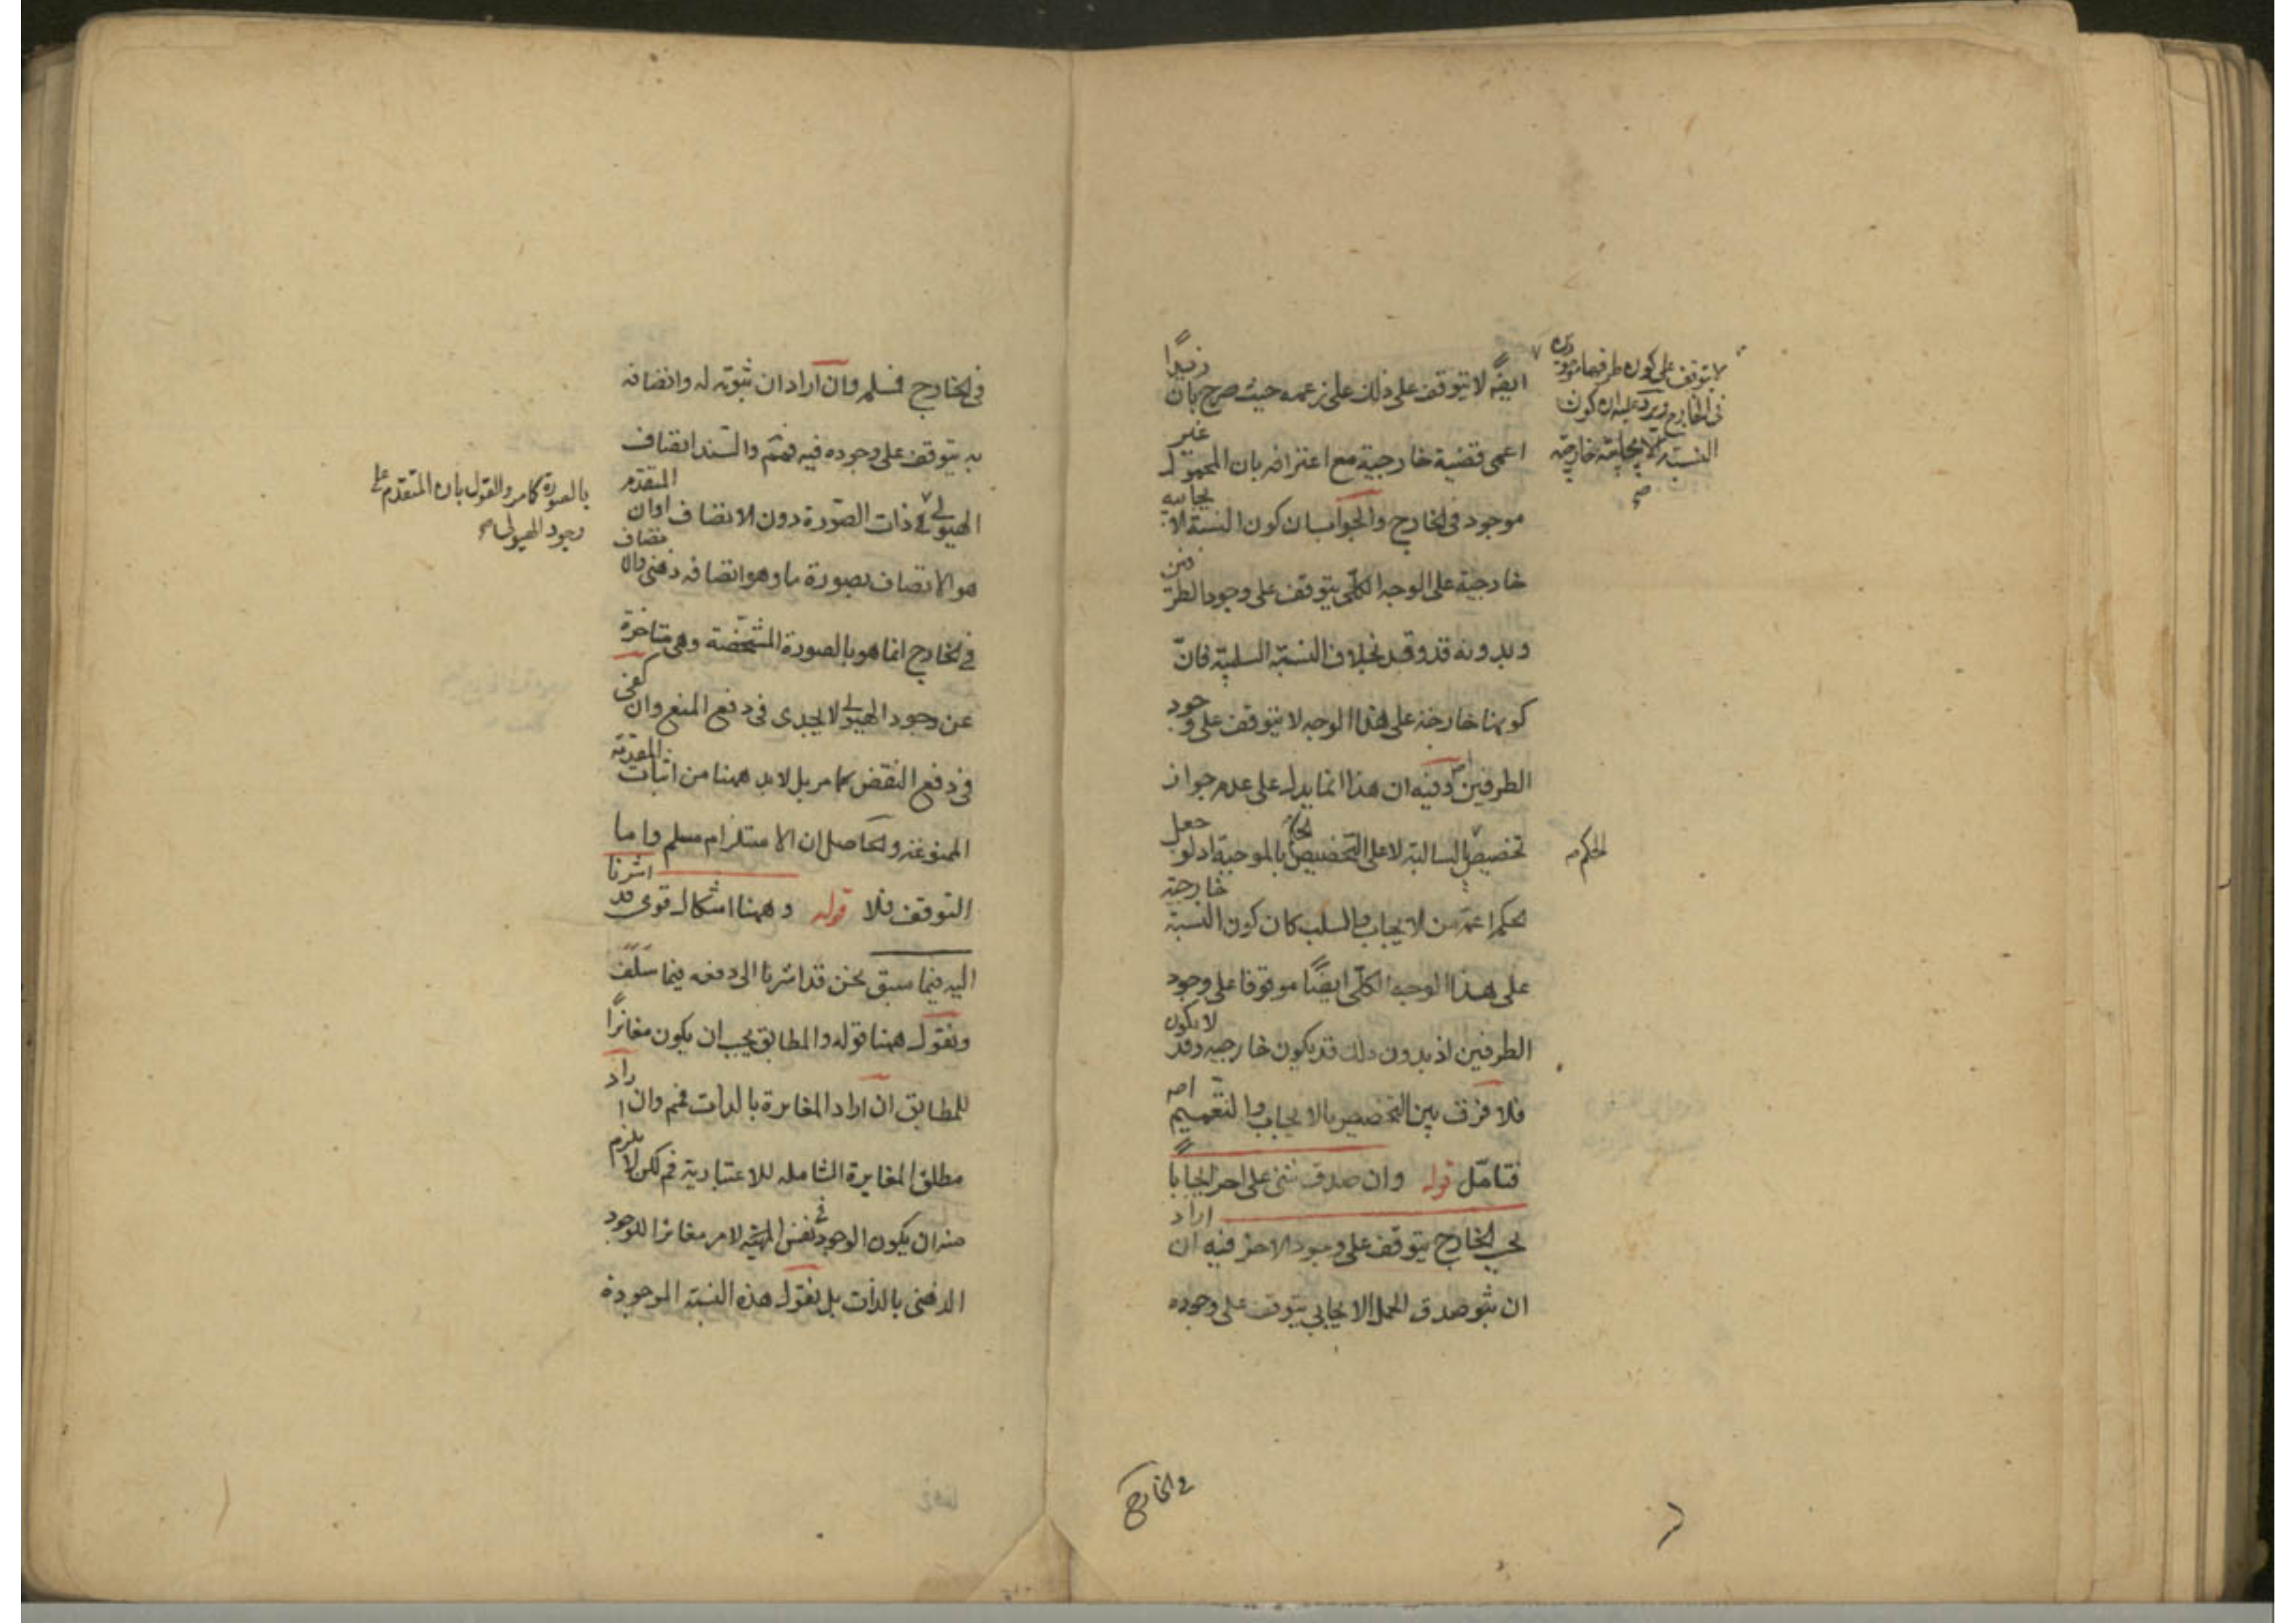 ايضًا لا يتوقف على ذلك على زعمه حيث صرح بان زيدًا
اعمى قضية خارجية مع اعترافه بان المحمول غير
موجود فى الخارج والجواب ان كون النسبة الايجابية
خارجية على الوجه الكلّى يتوقف على وجود الطرفين
وبدونه قد وقد بخلاف النسبة السلبية فانّ
كونها خارجية على هذا الوجه لا يتوقف على وجود
الطرفين وفيه ان هذا انما يدل على عدم جواز
تخصيص بالسالبة لا على التخصيص بالموجبة اذ لو جعل
الحكم اعمّ من الايجاب والسلب كان كون النسبة خارجية
على هذا الوجه الكلّى ايضًا موقوفا على وجود
الطرفين اذ بدون ذلك قد يكون خارجية وقد لا يكون
فلا فرق بين التخصيص بالايجاب والتعميم
فتامّل قوله وان صدق شئ على اخر ايجابا
بحسب الخارج يتوقف على وجود الاخر فيه ان اراد
ان صدق الحمل الايجابى يتوقف على وجوده
لا يتوقف على كون طرفيها
فى الخارج ويرد عليه ان كون
النسبة الايجابية خارجية
الحكم
فى الخارج
فى الخارج فسلم وان اراد ان ثبوته له واتصافه
به يتوقف على وجوده فيه فمنع والسند اتصاف
الهيولى فى ذات الصورة دون الاتصاف اوان المتقدم
هو الاتصاف بصورة ما وهو اتصافه ذهنى والا
فى الخارج انما هو بالصورة المشخصة وهى متاخرة
عن وجود الهيولى لا يجدى فى دفع المنع وان كفى
فى دفع النقض كما مر بل لا بد ههنا من اثبات المقدمة
الممنوعة والحاصل ان الاستلزام مسلم واما
التوقف فلا قوله وههنا اشكال قوى قد اشرنا
اليه فيما سبق نحن قد اشرنا الى دفعه فيما سَلَفَ
ونقول ههنا قوله والمطابق يجب ان يكون مغائرًا
للمطابق ان اراد المغايرة بالذات فمم وان اراد
مطلق المغايرة الشاملة للاعتبارية فم لكن لا يلزم
منه ان يكون الوجود فى نفس الامر مغائرا للوجود
الذهنى بالذات بل نقول هذه النسبة الموجودة
بالصورة كامر والقول بان المتقدم على
وجود الهيولى